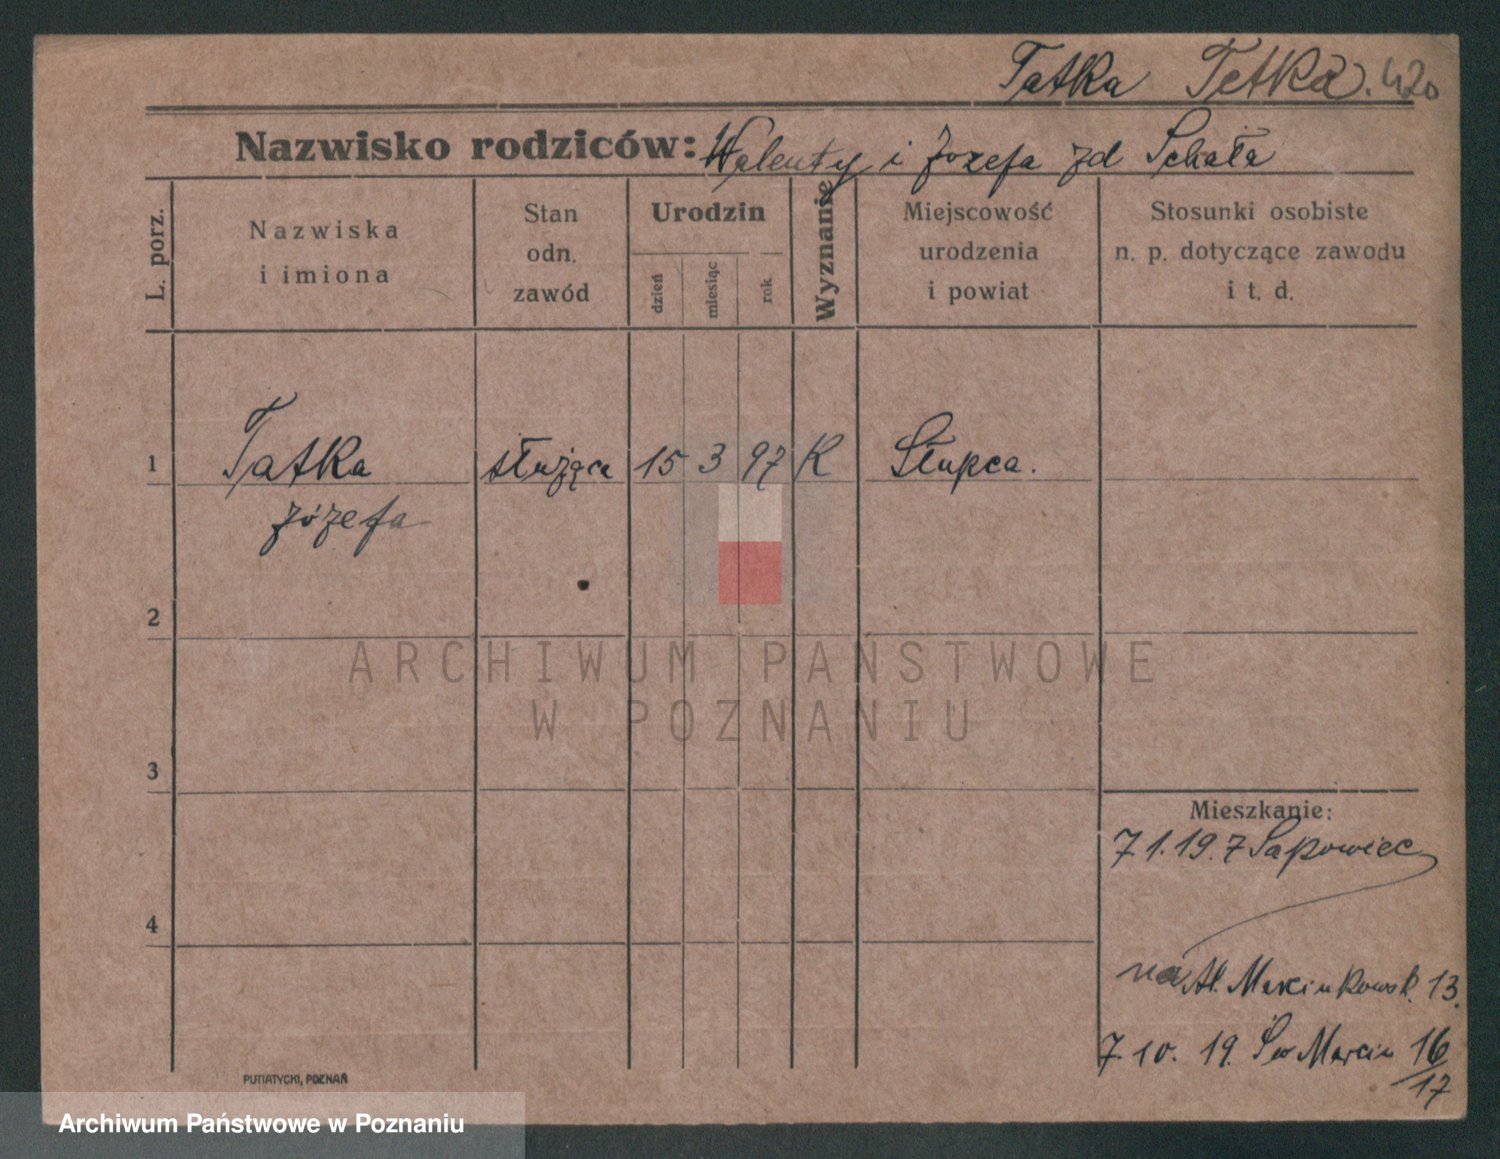 Tatka Tetka. 420
Nazwisko rodziców: Walenty i Józefa zd Schała
L. porz.
Nazwiska i imiona
Stan odn. zawód
Urodzin
dzień
miesiąc
rok
Wyznanie
Miejscowość urodzenia i powiat
Stosunki osobiste n. p. dotyczące zawodu i t. d.
1 Tatka służąca 15 3 97 K Słupca.
Józefa
2
ARCHIWUM PAŃSTWOWE
W POZNANIU
3
Mieszkanie:
7 1. 19. z Sapowiec
4
na Al. Marcinkowsk. 13.
7. 10. 19. Św Marcin 16/17
PUTIATYCKI, POZNAŃ
Archiwum Państwowe w Poznaniu